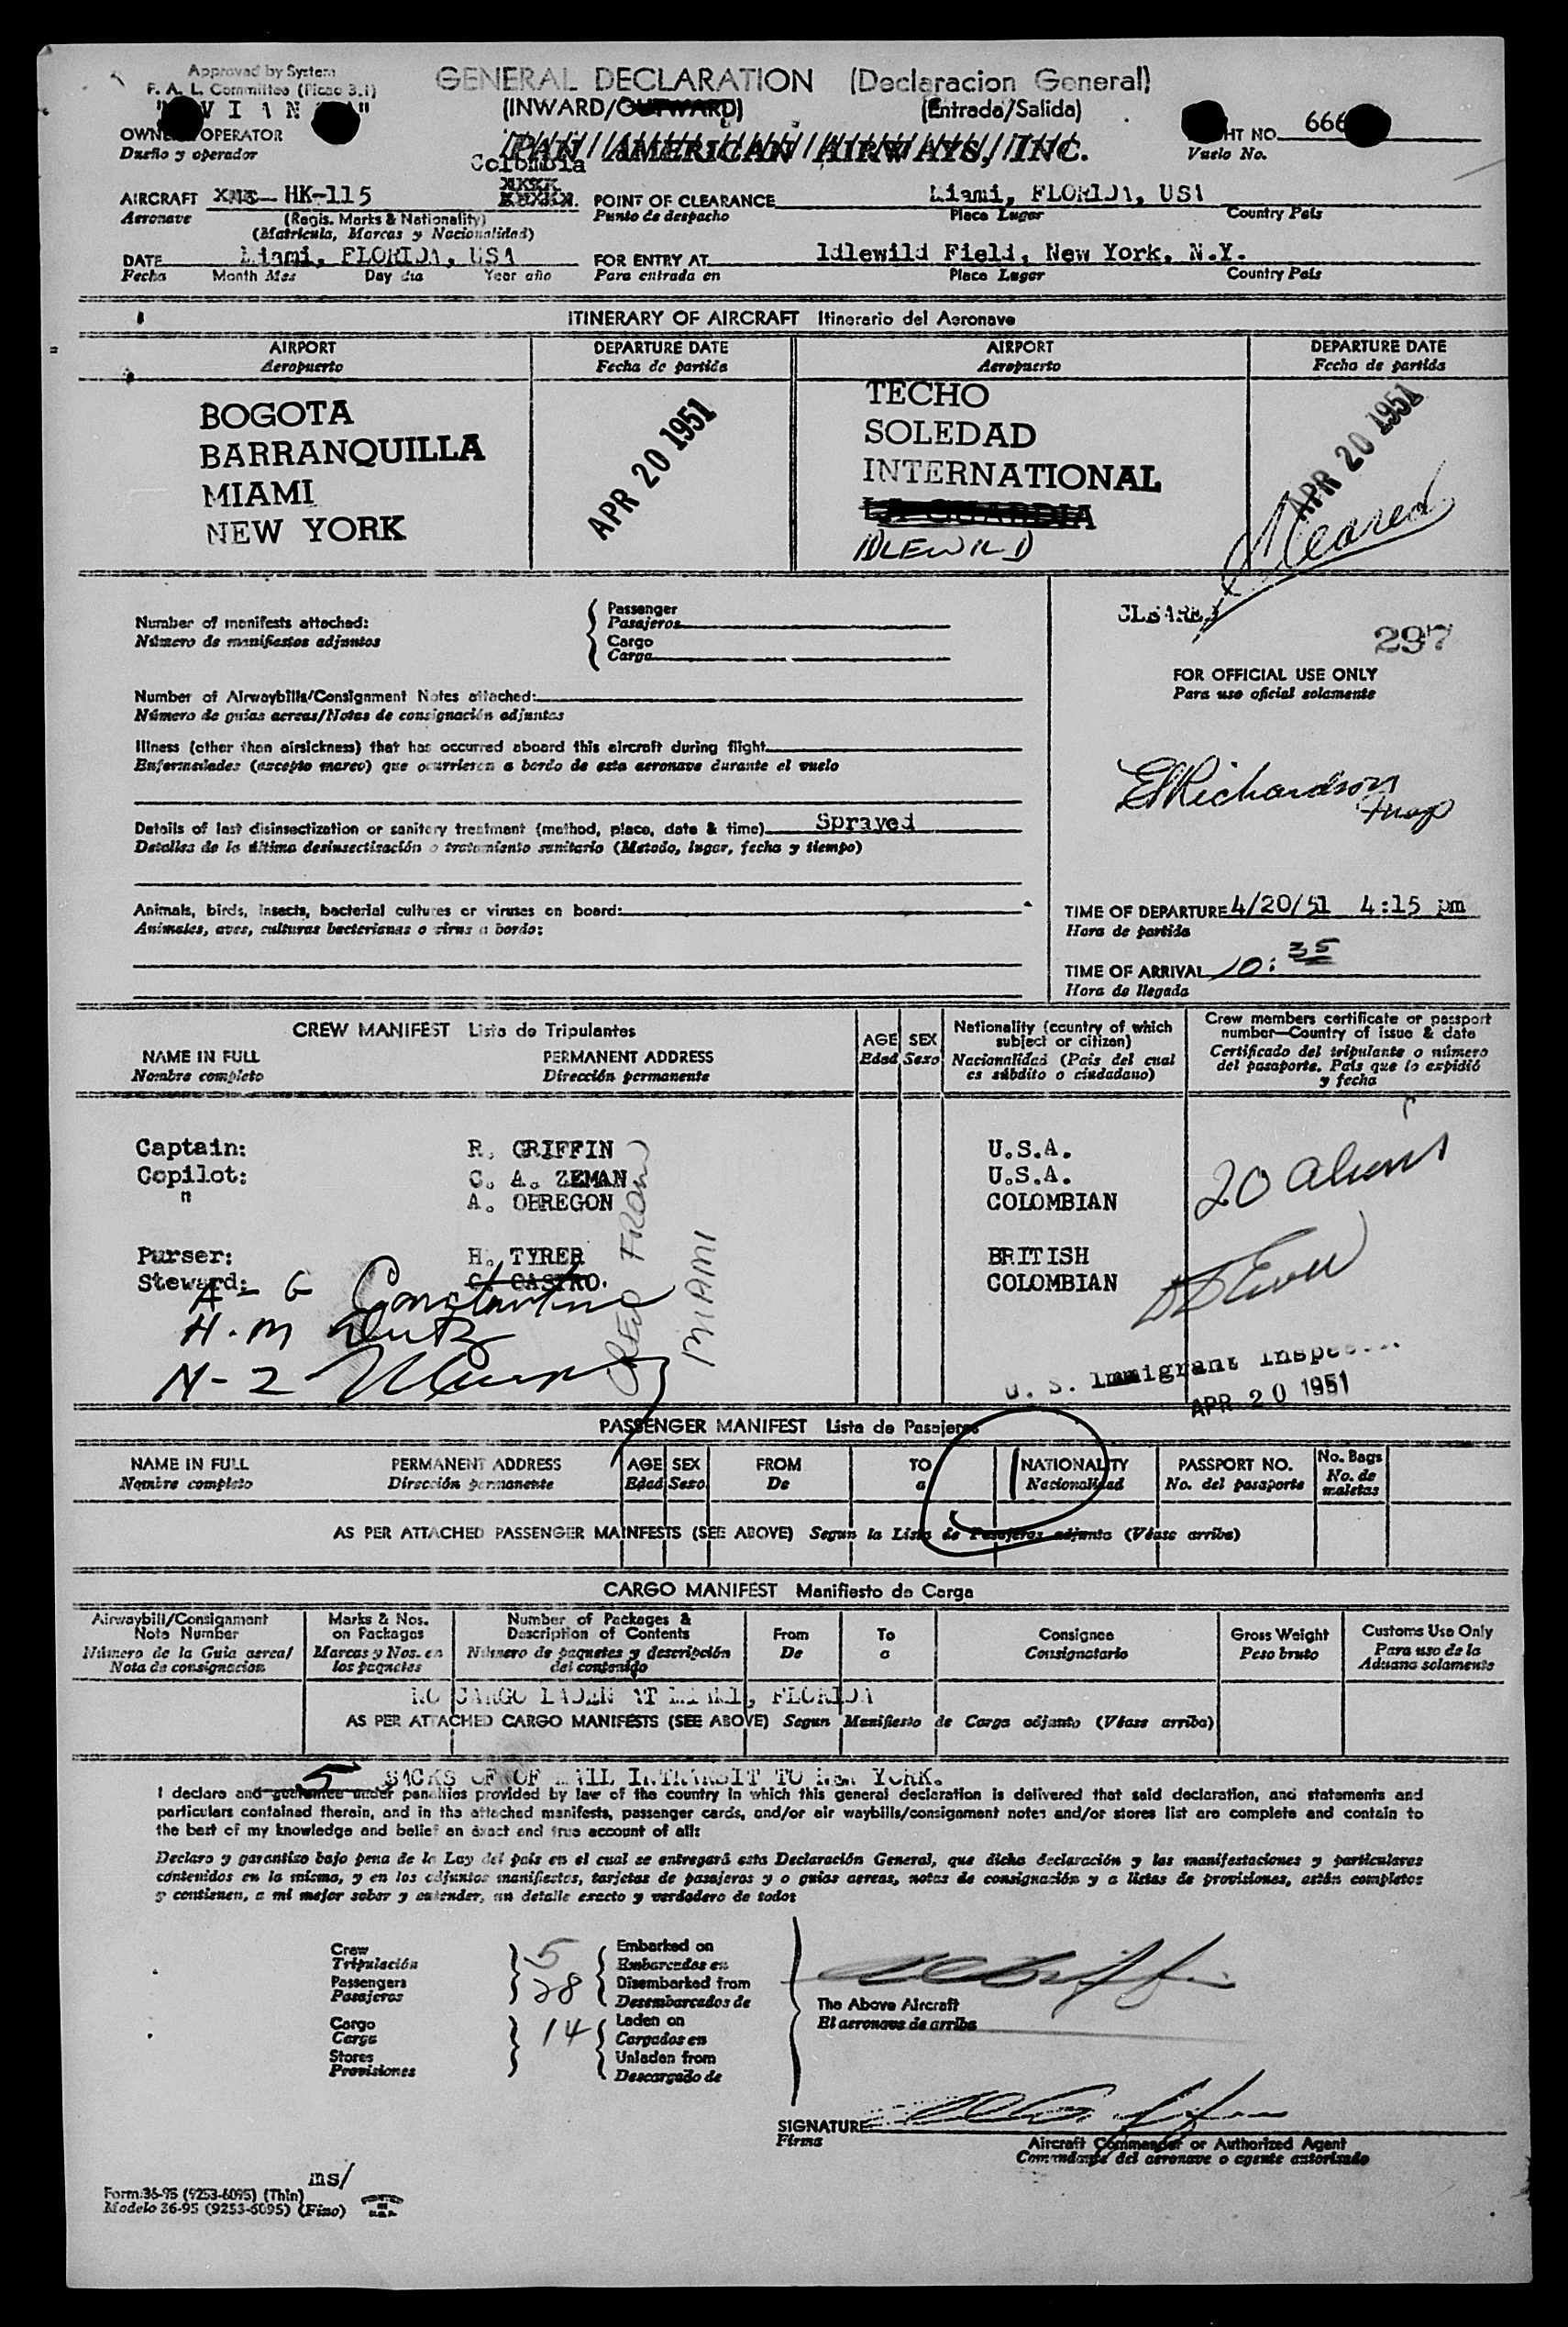 Approved by System
F. A. L. Committee (Picao 3.1)
GENERAL DECLARATION (Declaracion General)
(INWARD/OUTWARD) (Entrada/Salida)
OWNER OPERATOR
Dueño y operador
PAN AMERICAN AIRWAYS, INC.
HT NO. 666
Vuelo No.
Colombia
AIRCRAFT HK-115
Aeronave (Regis. Marks & Nationality)
(Matricula, Marcas y Nacionalidad)
POINT OF CLEARANCE Miami, FLORIDA, USA
Punto de despacho Place Lugar Country Pais
DATE Miami, FLORIDA, USA
Fecha Month Mes Day dia Year año
FOR ENTRY AT Idlewild Field, New York, N.Y.
Para entrada en Place Lugar Country Pais
ITINERARY OF AIRCRAFT Itinerario del Aeronave
AIRPORT DEPARTURE DATE AIRPORT DEPARTURE DATE
Aeropuerto Fecha de partida Aeropuerto Fecha de partida
BOGOTA
BARRANQUILLA
MIAMI
NEW YORK
APR 20 1951
TECHO
SOLEDAD
INTERNATIONAL
LA GUARDIA
IDLEWILD
APR 20 1951
Cleared
Number of manifests attached:
Número de manifiestos adjuntos
Passenger
Pasajeros
Cargo
Carga
CLEARED
297
FOR OFFICIAL USE ONLY
Para uso oficial solamente
Number of Airwaybills/Consignment Notes attached:
Número de guias aereas/Notas de consignación adjuntas
Illness (other than airsickness) that has occurred aboard this aircraft during flight
Enfermedades (excepto mareo) que ocurrieron a bordo de esta aeronave durante el vuelo
Richardson
Insp
Details of last disinsectization or sanitary treatment (method, place, date & time) Sprayed
Detalles de la última desinsectización o tratamiento sanitario (Metodo, lugar, fecha y tiempo)
Animals, birds, insects, bacterial cultures or viruses on board:
Animales, aves, culturas bacterianas o virus a bordo:
TIME OF DEPARTURE 4/20/51 4:15 pm
Hora de partida
TIME OF ARRIVAL 10:35
Hora de llegada
CREW MANIFEST Lista de Tripulantes
NAME IN FULL PERMANENT ADDRESS
Nombre completo Dirección permanente
AGE SEX
Edad Sexo
Nationality (country of which
subject or citizen)
Nacionalidad (Pais del cual
es súbdito o ciudadano)
Crew members certificate or passport
number—Country of issue & date
Certificado del tripulante o número
del pasaporte. Pais que lo expidió
y fecha
Captain: R. GRIFFIN U.S.A.
Copilot: C. A. ZEMAN U.S.A.
" A. OBREGON COLOMBIAN
Purser: H. TYRER BRITISH
Steward: C. CASTRO. COLOMBIAN
20 aliens
A- G Constantine
H.M
N-2
CREW FROM
MIAMI
U. S. Immigrant Inspector
APR 20 1951
PASSENGER MANIFEST Lista de Pasajeros
NAME IN FULL PERMANENT ADDRESS AGE SEX FROM TO NATIONALITY PASSPORT NO. No. Bags
Nombre completo Dirección permanente Edad Sexo De a Nacionalidad No. del pasaporte No. de
maletas
AS PER ATTACHED PASSENGER MAINFESTS (SEE ABOVE) Segun la Lista de Pasajeros adjunta (Véase arriba)
CARGO MANIFEST Manifiesto de Carga
Airwaybill/Consignment
Note Number
Número de la Guia aerea/
Nota de consignacion
Marks & Nos.
on Packages
Marcas y Nos. en
los paquetes
Number of Packages &
Description of Contents
Número de paquetes y descripción
del contenido
From
De
To
a
Consignee
Consignatario
Gross Weight
Peso bruto
Customs Use Only
Para uso de la
Aduana solamente
NO CARGO LADEN AT MIAMI, FLORIDA
AS PER ATTACHED CARGO MANIFESTS (SEE ABOVE) Segun Manifiesto de Carga adjunto (Véase arriba)
5 SACKS OF OF MAIL INTRANSIT TO NEW YORK.
I declare and guarantee under penalties provided by law of the country in which this general declaration is delivered that said declaration, and statements and
particulars contained therein, and in the attached manifests, passenger cards, and/or air waybills/consignment notes and/or stores list are complete and contain to
the best of my knowledge and belief an exact and true account of all:
Declaro y garantizo bajo pena de la Ley del pais en el cual se entregará esta Declaración General, que dicha declaración y las manifestaciones y particulares
contenidos en la misma, y en los adjuntos manifiestos, tarjetas de pasajeros y o guias aereas, notas de consignación y a listas de provisiones, están completos
y contienen, a mi mejor saber y entender, un detalle exacto y verdadero de todo:
Crew
Tripulación
Passengers
Pasajeros
5
28
Embarked on
Embarcados en
Disembarked from
Desembarcados de
Cargo
Carga
Stores
Provisiones
14
Laden on
Cargados en
Unladen from
Descargado de
The Above Aircraft
El aeronave de arriba
SIGNATURE
Firma
Aircraft Commander or Authorized Agent
Comandante del aeronave o agente autorizado
ms/
Form 36-95 (9253-6095) (Thin)
Modelo 36-95 (9253-6095) (Fino)
PRINTED
IN
U.S.A.